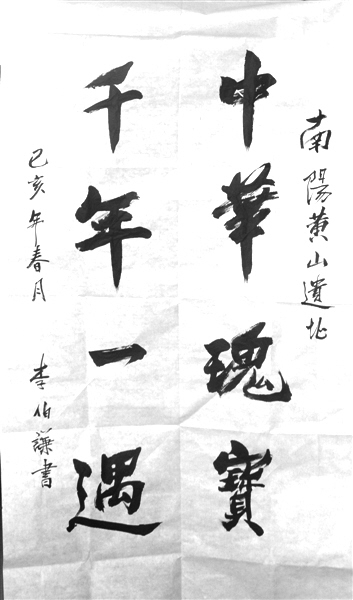 南陽黄山遺址
中華瑰寶
千年一遇
己亥年春月 李伯謙書